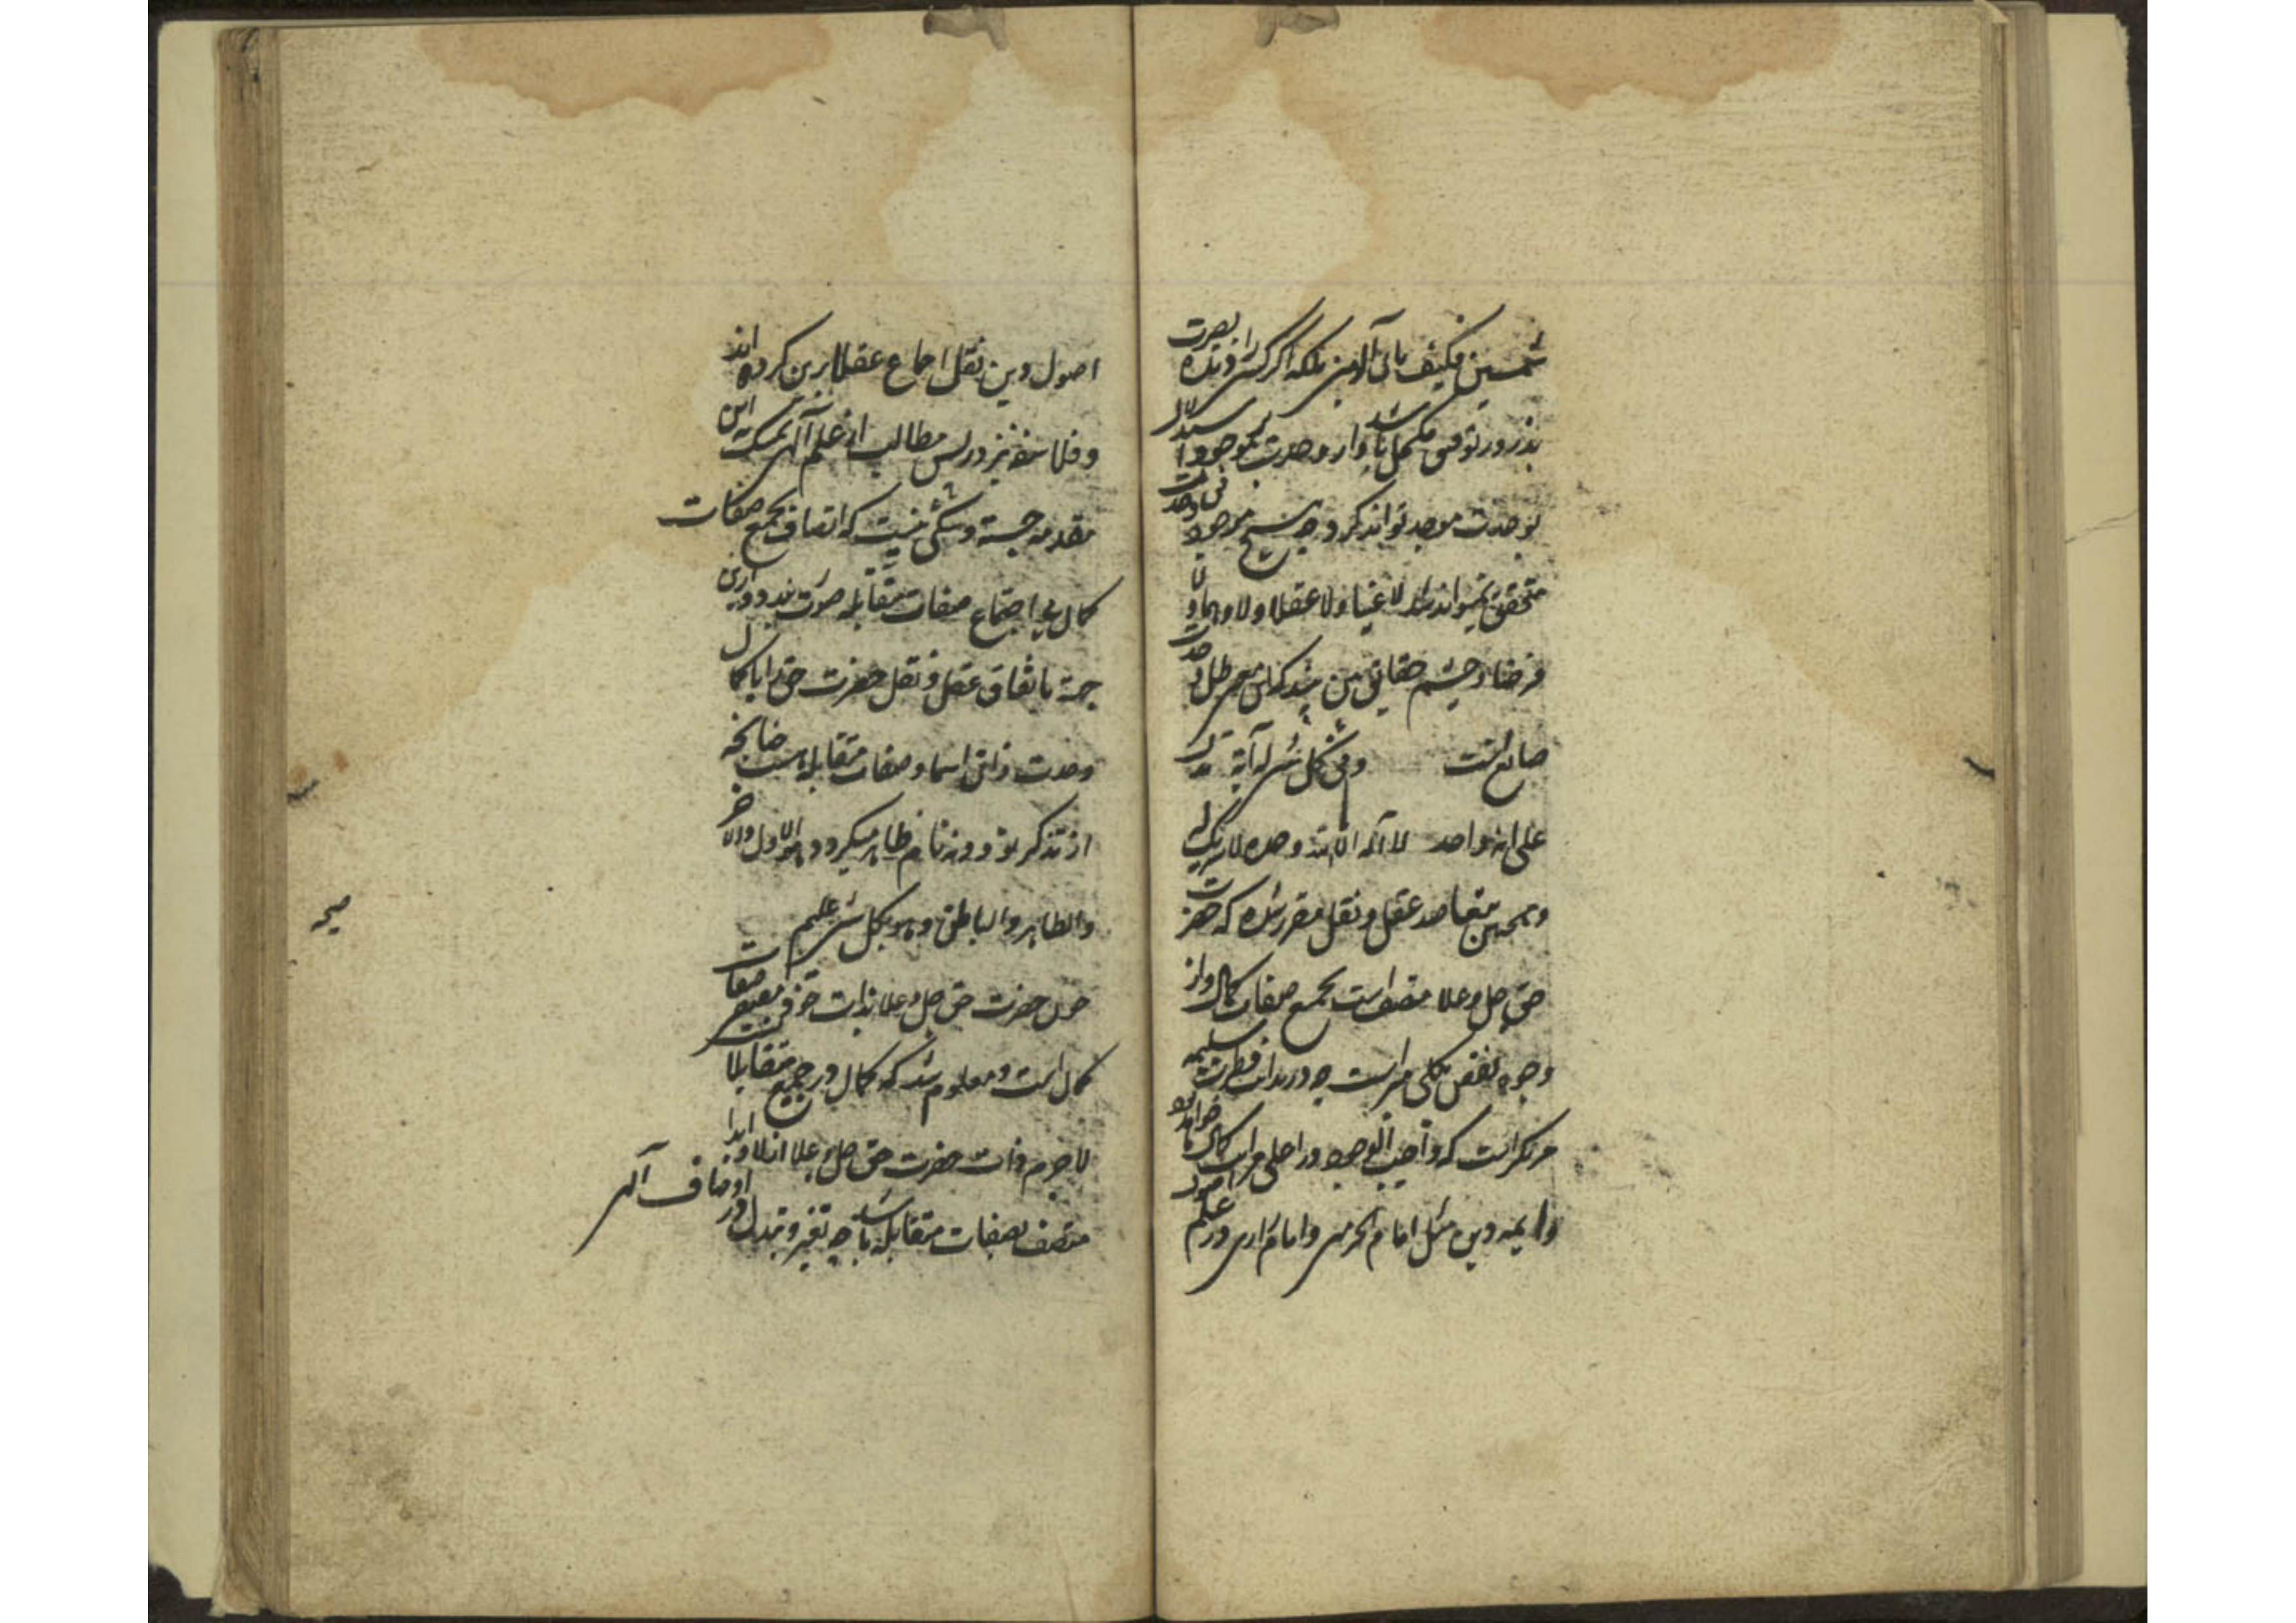 شمسین فکیف بابی آلامین بلکه اگر کسی را دیده بصیرت
بذرور توفیق مکحل باشد از وحدت هر موجود استدلال
بوحدت موجد تواند کرد و چون هیچ موجود بی وحدت
متحقق نمیتواند شد لا عینا ولا عقلا ولا وهما ولا
فرضا و چشم حقایق بین بیند که این معنی ظل وحدت
صانع است وفی کل شیء له آیة تدل
علی انه واحد لا آله الا الله وحده لا شریک له
وهمچنین مقاصد عقل و نقل مقرر شده که حضرت
حق جل وعلا متصف است بجمیع صفات کمال و از
وجوه نقص بکلی مبراست چه در بدایت فطرت سلیمه
مرتکز است که واجب الوجود در اعلی مراتب کمال تواند بود
وائمه دین مثل امام الحرمین و امام رازی در علم
اصول دین نقل اجماع عقلا برین کرده‌اند
و فلاسفه نیز در بس مطالب از علم آلهی تمسک به این
مقدمه جسته و شکی نیست که اتصاف بجمیع صفات
کمال بی اجتماع صفات متقابله صورت نبندد و ازین
جهة باتفاق عقل و نقل حضرت حق را با کمال
وحدت ذاتی اسما و صفات متقابله است چنانچه
از تذکر نود و نه نام ظاهر میگردد هو الاول والآخر
والظاهر والباطن وهو بکل شیء علیم
چون حضرت حق جل وعلا بذات خود مقتضی صفات
کمال است و معلوم شد که کمال در جمیع متقابلا تست
لاجرم ذات حضرت حق جل وعلا ازلا وابدا
متصف بصفات متقابله باشد چه تغیر و تبدل در اوصاف آلهی
صحه